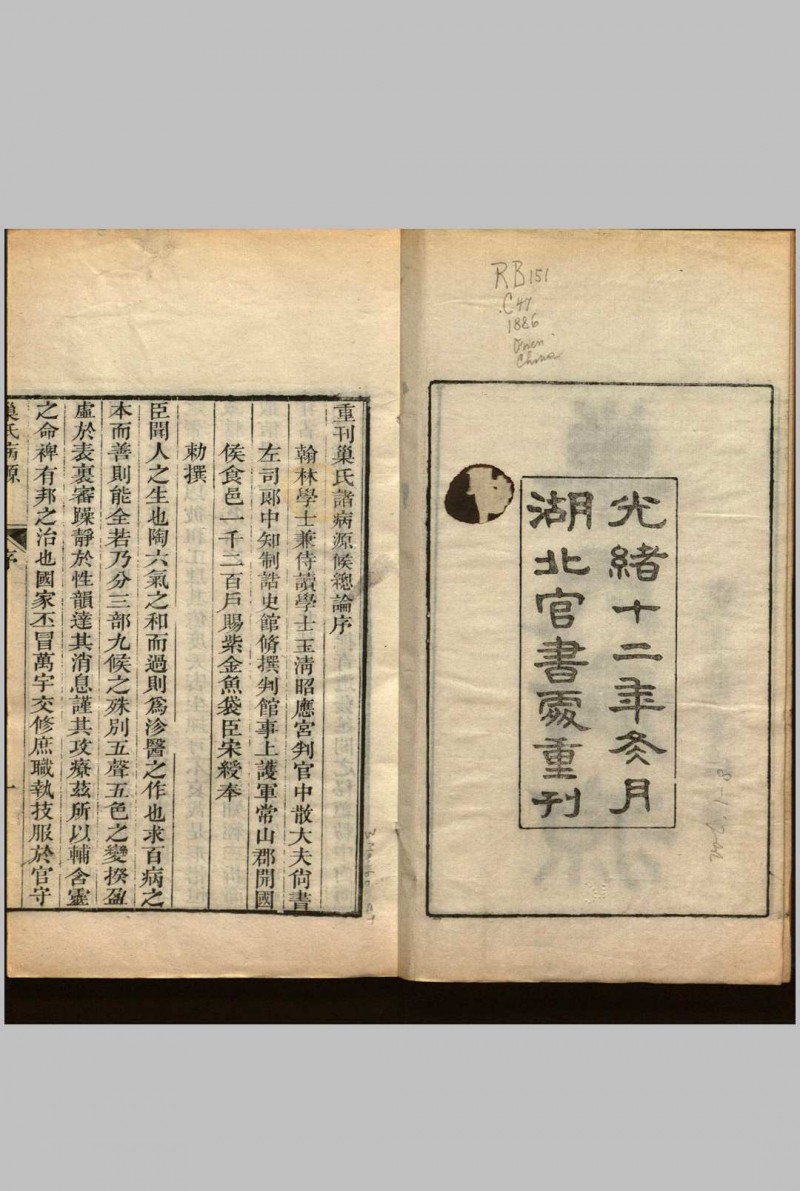 RB151
.C47
1886
Orien
China
光緒十二年冬月
湖北官書處重刊
重刊巢氏諸病源候總論序
翰林學士兼侍讀學士玉清昭應宮判官中散大夫尙書
左司郞中知制誥史館脩撰判館事上護軍常山郡開國
侯食邑一千二百戶賜紫金魚袋臣宋綬奉
勅撰
臣聞人之生也陶六氣之和而過則爲沴醫之作也求百病之
本而善則能全若乃分三部九候之殊別五聲五色之變揆盈
虛於表裏審躁靜於性韻達其消息謹其攻療茲所以輔含靈
之命裨有邦之治也國家丕冒萬宇交修庶職執技服於官守
巢氏病源
序
一